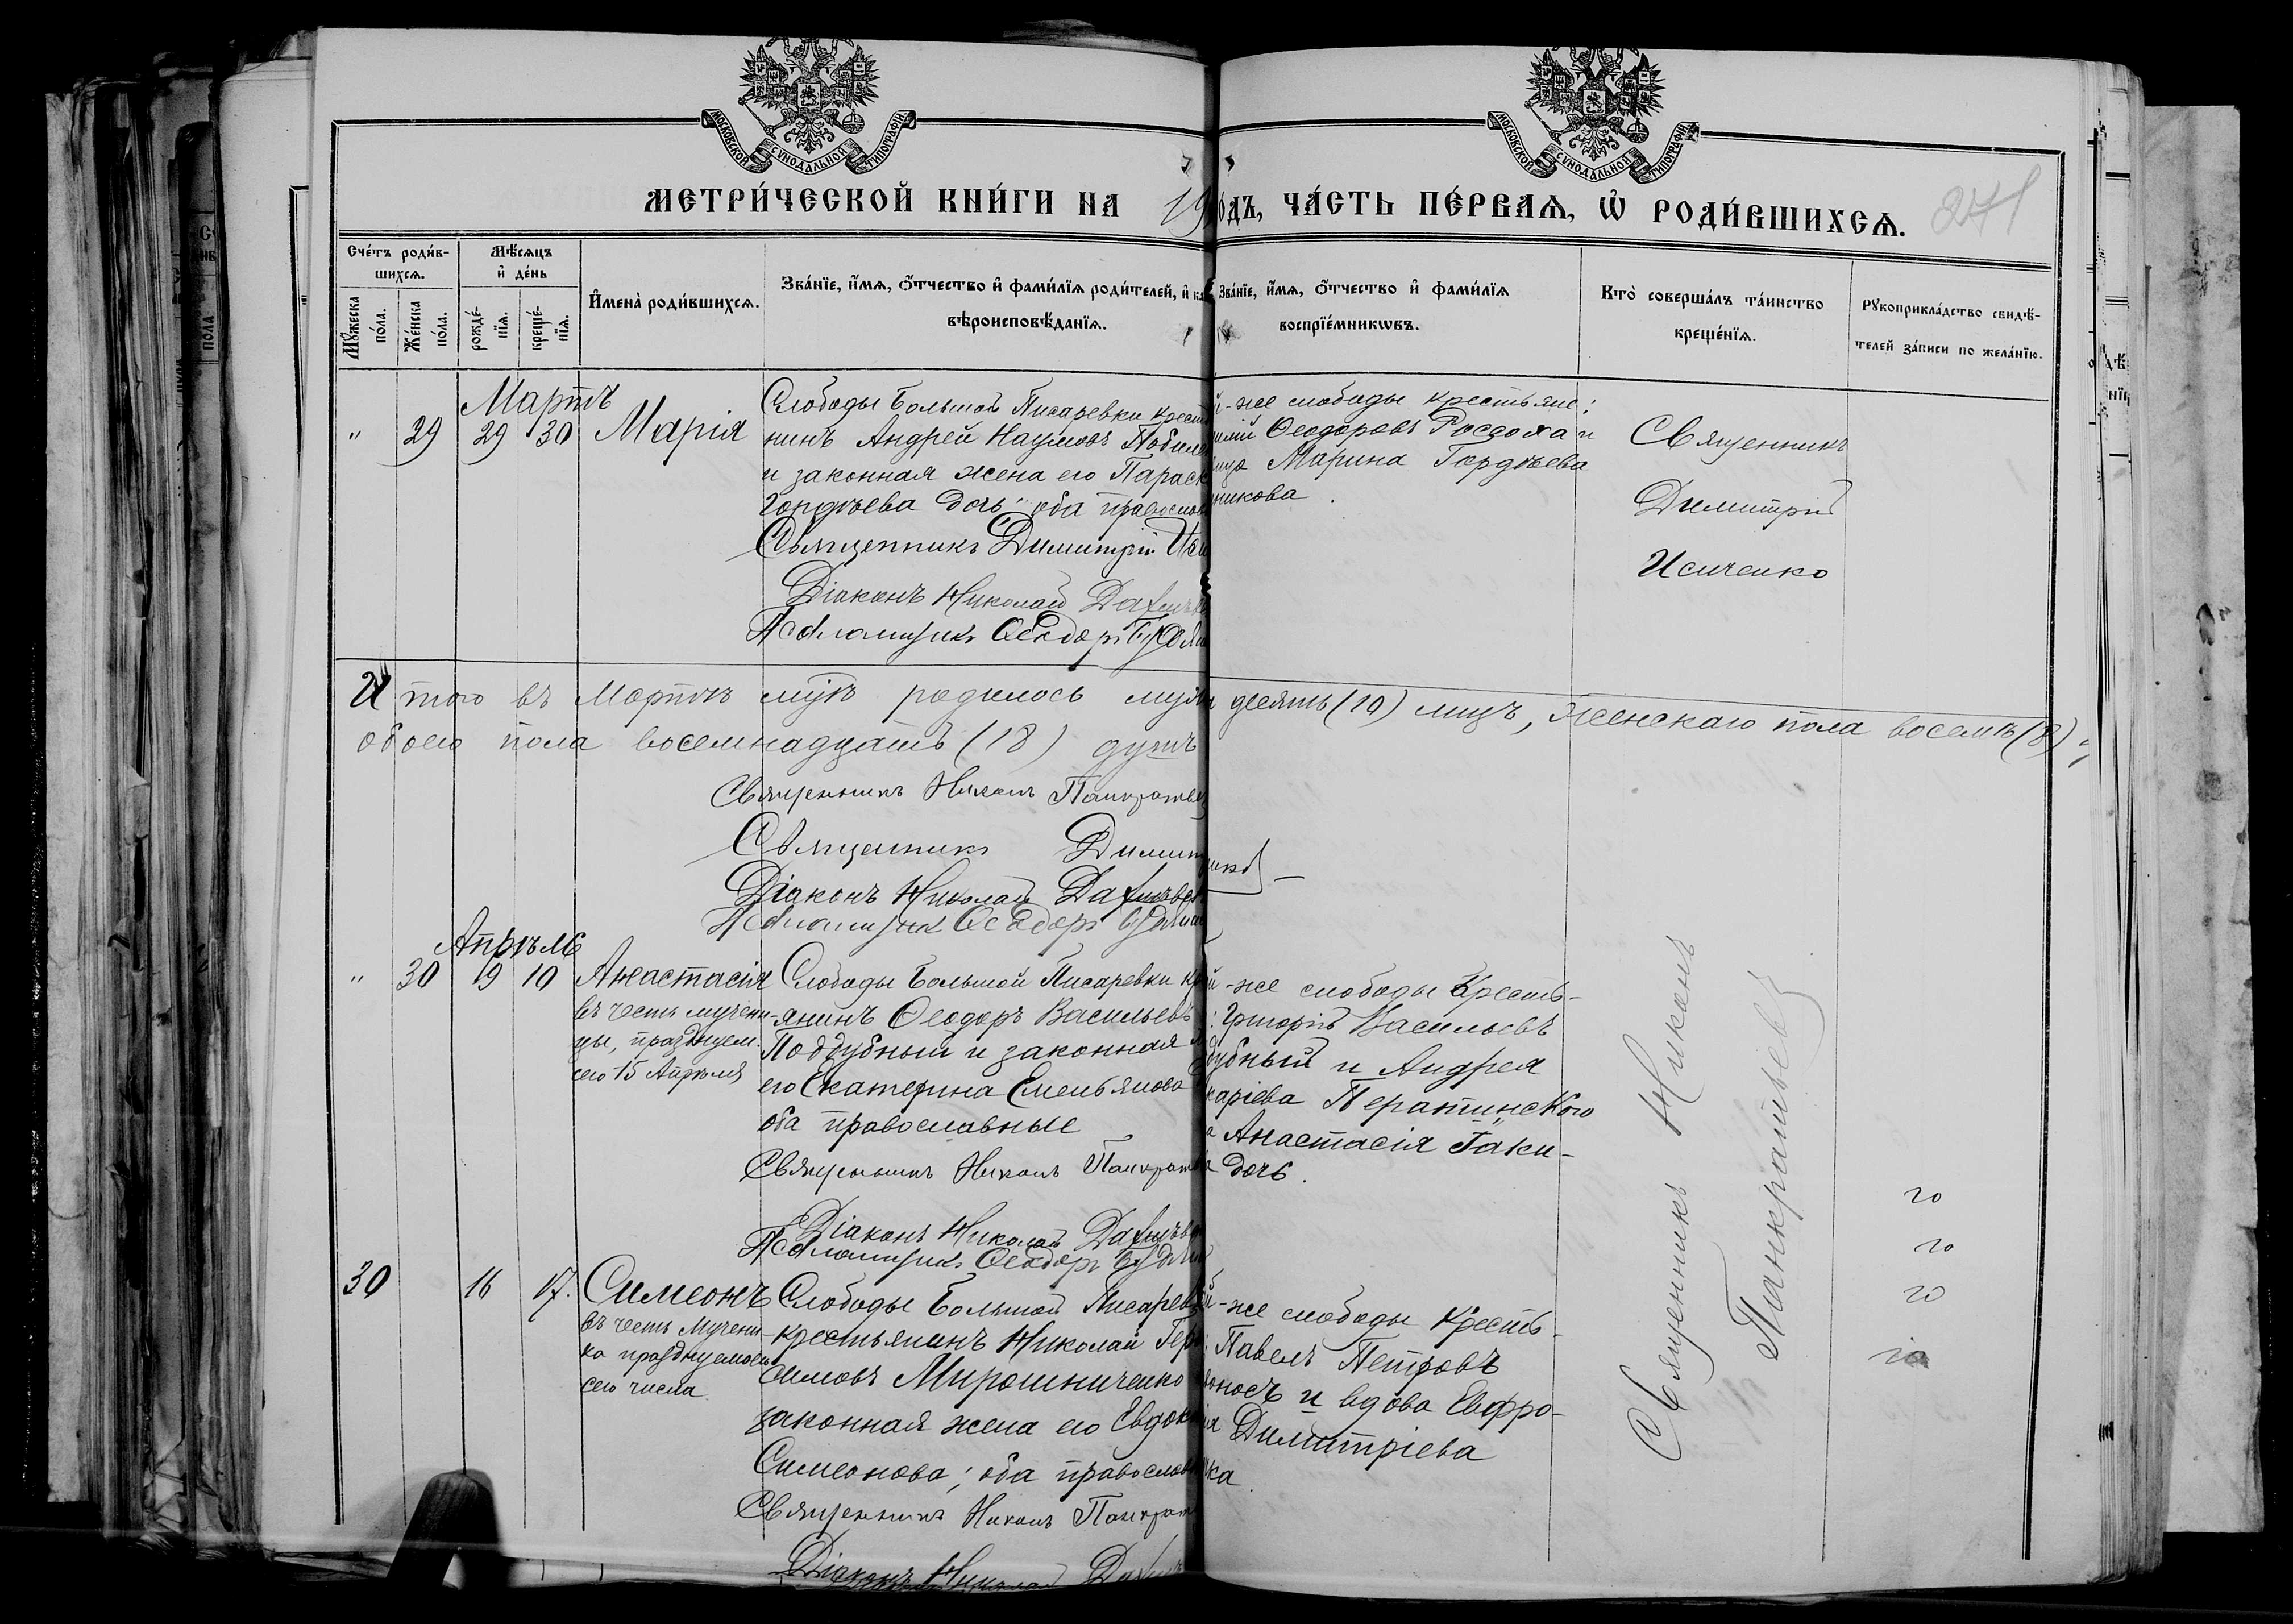 МОСКОВСКОЙ СУНОДАЛЬНОЙ ТИПОГРАФІИ
МОСКОВСКОЙ СУНОДАЛЬНОЙ ТИПОГРАФІИ
МЕТРИ́ЧЕСКОЙ КНИ́ГИ НА 19
ОДЪ, ЧА́СТЬ ПЕ́РВАѦ, Ѡ РОДИ́ВШИХСѦ.
271
Сче́тъ роди́в-
шихсѧ.
Мѣ́сѧцъ
и҆ де́нь
Мꙋ́жеска по́ла.
Же́нска по́ла.
рожде́-
нїѧ.
креще́-
нїѧ.
И҆мена̀ роди́вшихсѧ.
Зва́нїе, и҆́мѧ, ѻ҆́тчество и҆ фами́лїѧ роди́телей, и҆
вѣроисповѣ́данїѧ.
Зва́нїе, и҆́мѧ, ѻ҆́тчество и҆ фами́лїѧ
воспрїе́мникѡвъ.
Кто̀ соверша́лъ та́инство
креще́нїѧ.
Рꙋкоприкла́дство свидѣ́-
телей за́писи по жела́нїю.
Мартъ
" 29 29 30 Марія
Слободы Большой Писаревки крест
нинъ Андрей Наумовъ
и законная жена его Параск
Гордѣева дочь; оба православ
Священникъ Димитрій Иси
Діаконъ Николай
Псаломщикъ Ѳеодоръ
й-же слободы крестьяне:
Ѳеодоровъ и
Марина Гордѣева
никова.
Священникъ
Димитрій
Исиченко
Итого въ Мартѣ м-цѣ родилось муж десять (10) лицъ, женскаго пола восемь (8),
обоего пола восемнадцать (18) душъ
Священникъ Никонъ Панкратьев
Священникъ Димит
Діаконъ Николай
Псаломщикъ Ѳеодоръ
Апрѣль
" 30 9 10 Анастасія
въ честь мучени-
цы, празднуем.
сего 15 Апрѣля
Слободы Большой Писаревки кр
янинъ Ѳеодоръ Васильевъ
Поддубный и законная
его Екатерина Емельянова
оба православные
Священникъ Никонъ Панкрат
Діаконъ Николай
Псаломщикъ Ѳеодоръ
й-же слободы Кресть-
: Григорій Васильевъ
дубный и Андрея
каріева Ператинского
а Анастасія Гаки-
дочь.
30 16 17. Симеонъ
въ честь Мучени-
ка празднуемого
сего числа
Слободы Большой Писарев
крестьянинъ Николай Гера
симовъ Мирошниченко
законная жена его Евдок
Симеонова; оба православ
Священникъ Никонъ Панкрат
Діаконъ Николай
й-же слободы Кресть-
: Павелъ Петровъ
оносъ и вдова Евфро-
Димитріева
ка.
Священникъ Никонъ
Панкратьевъ